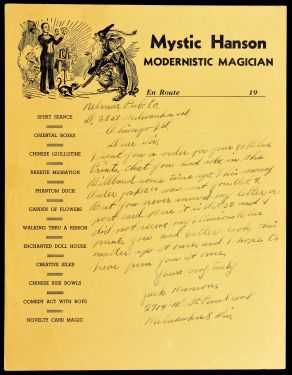 Mystic Hanson
MODERNISTIC MAGICIAN
En Route 19
SPIRIT SEANCE
ORIENTAL BOXES
CHINESE GUILLOTINE
RABBITS MIGRATION
PHANTOM DUCK
GARDEN OF FLOWERS
WALKING THRU A PERSON
ENCHANTED DOLL HOUSE
CREATIVE SILKS
CHINESE RISE BOWLS
COMEDY ACT WITH BOYS
NOVELTY CARD MAGIC
Nelmar Pub. Co.
2851 Milwaukee
Chicago Ill
Dear Sir,
I sent you a order for your Blue
Prints, that you had adv. in the
Billboard some time ago. This money
order was sent you
But you never answered letter or
post card. Here it is Oct 30 and I
did not receive my blue
prints, you had better look this
matter up at once, and I hope to
hear from you at once.
Yours very truly
Jack Hanson,
2714 W. St Paul
Milwaukee 8 Wis.